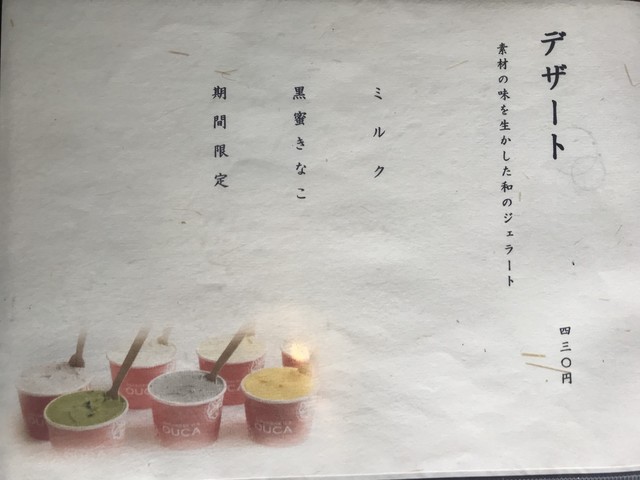 デザート
四三〇円
素材の味を生かした和のジェラート
ミルク
黒蜜きなこ
期間限定
DUCA
DUCA